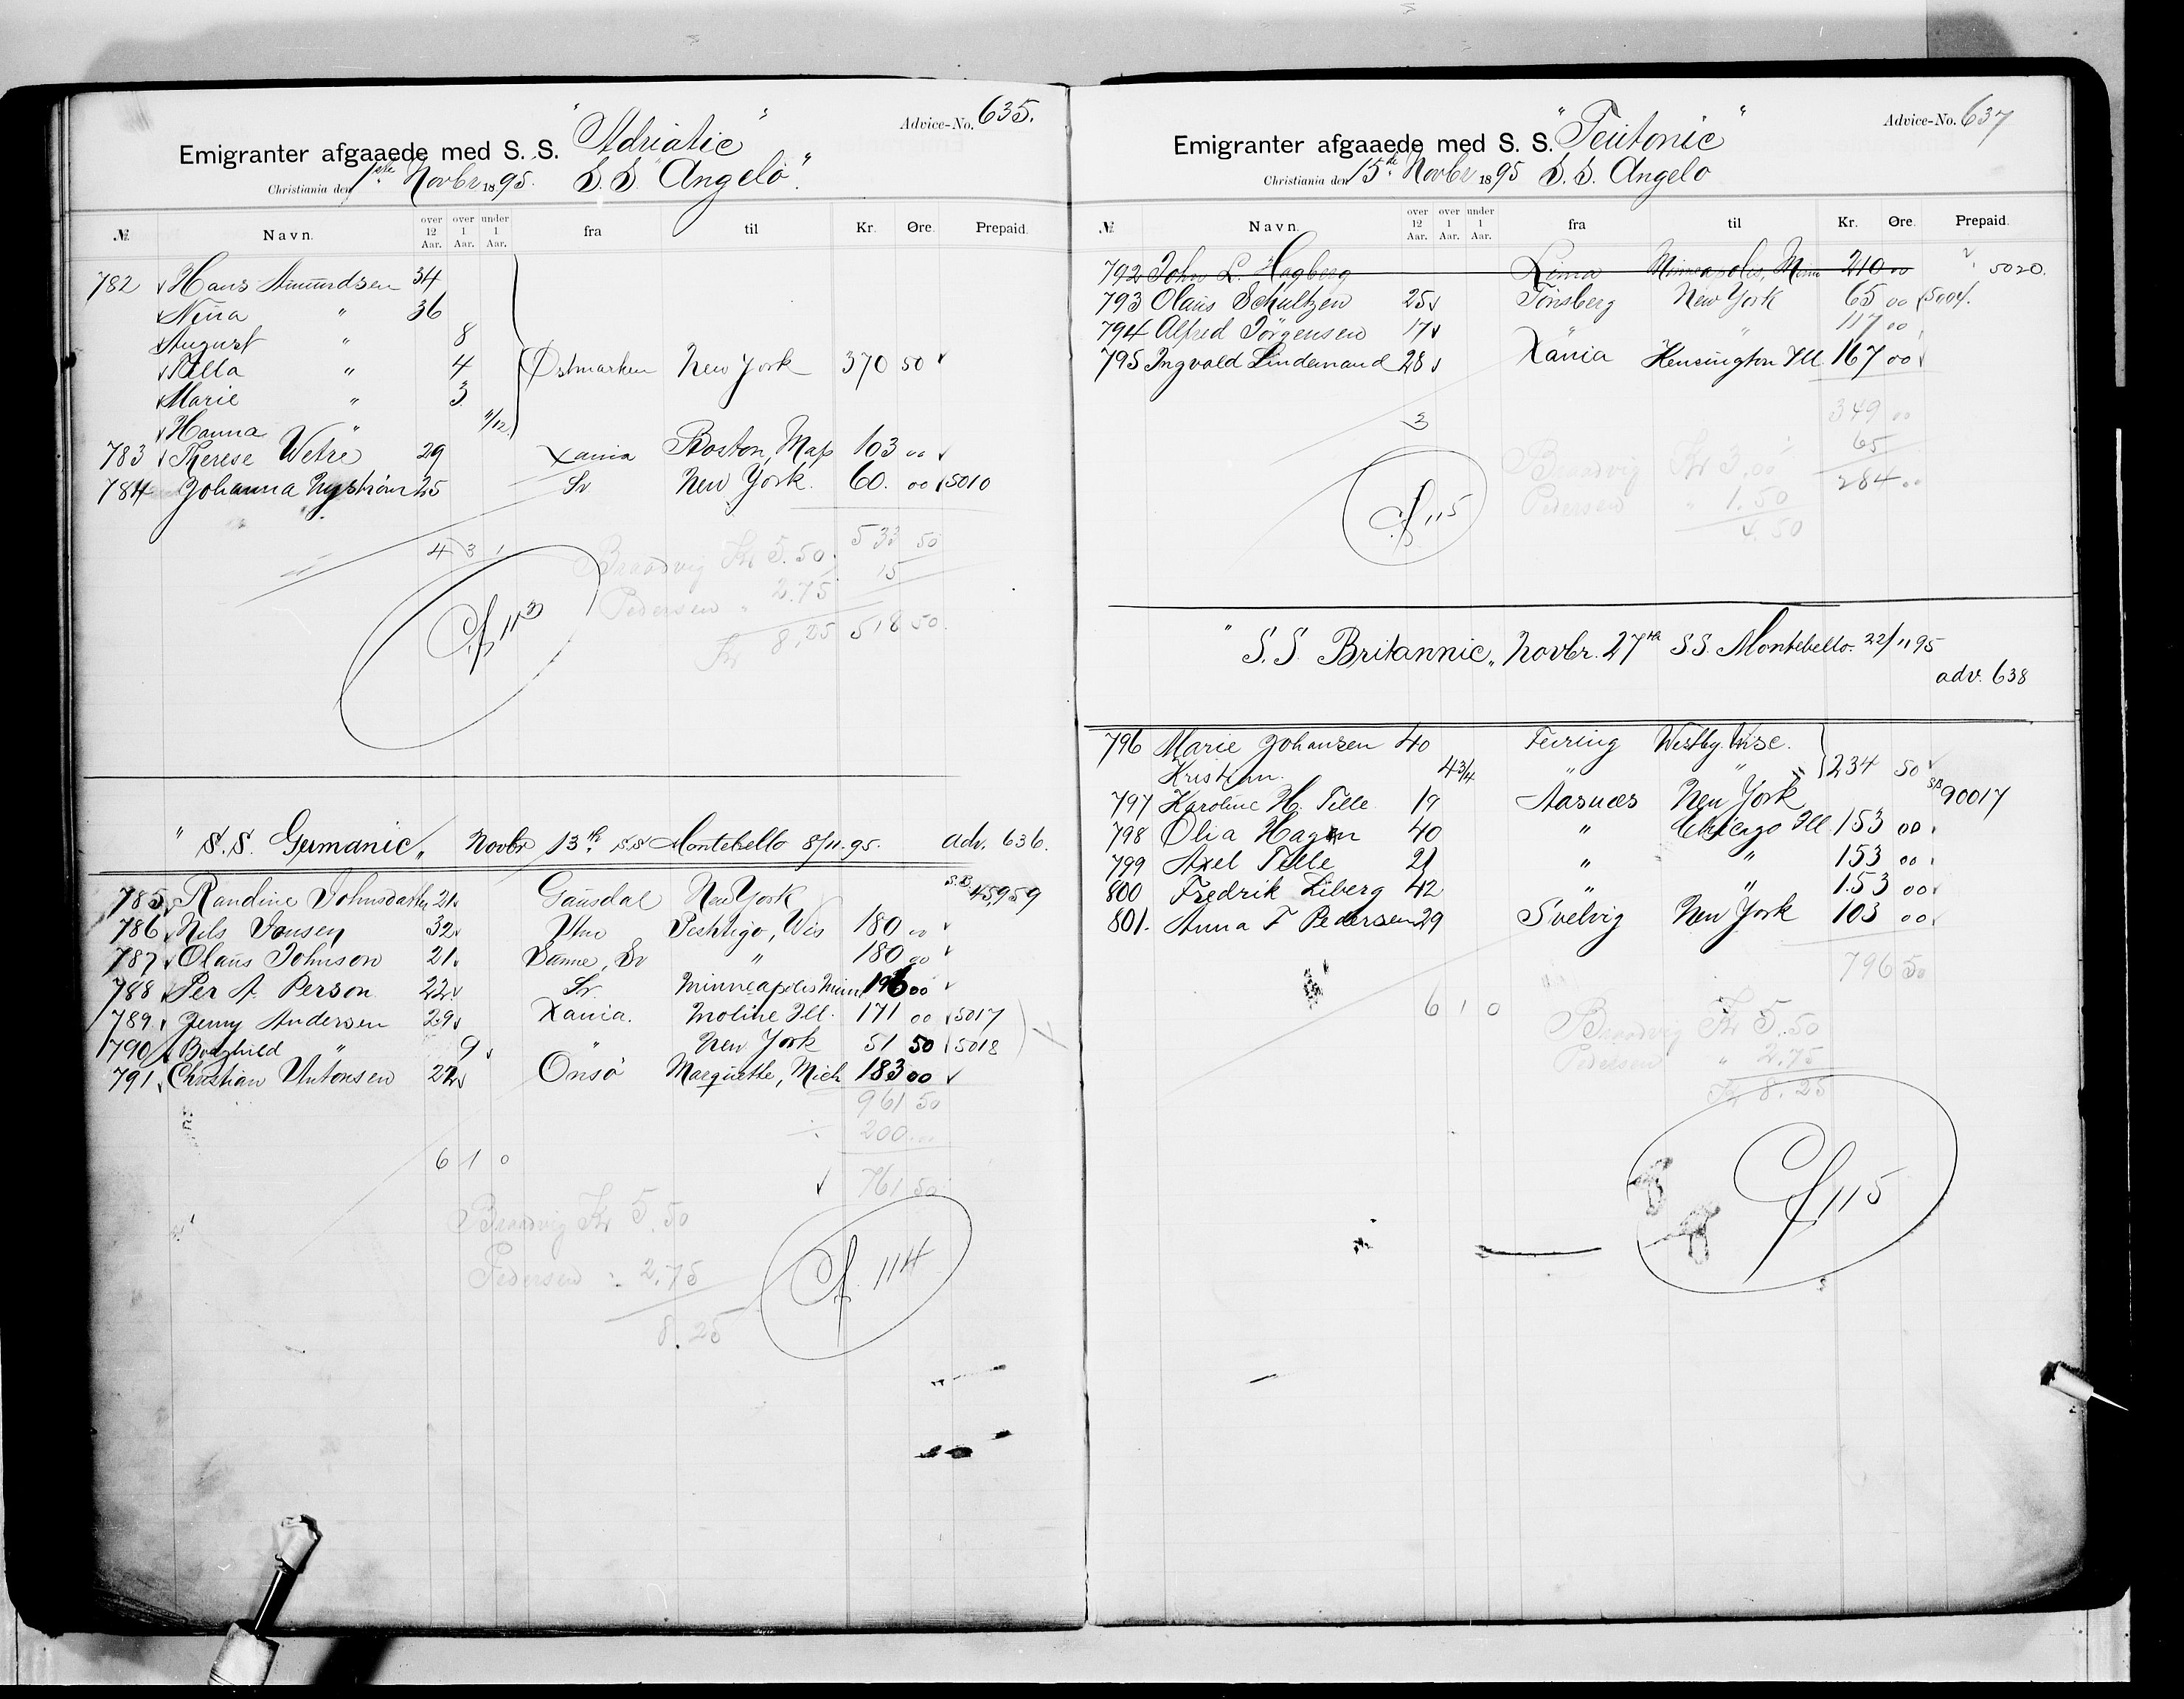 "Adriatic"
Advice-No. 635.
Emigranter afgaaede med S. S.
Christiania den 1ste Novbr 1895. S.S. "Angelo".
№ Navn. over 12 Aar. over 1 Aar. under 1 Aar. fra til Kr. Øre. Prepaid.
782 Hans Amundsen 34
Nina " 36
August " 8
" 4 Østmarken New York 370 50
Marie " 3
Hanna " 11/12
783 Therese Wetre 29 Xania Boston, Mass 103 00
784 Johanna Nyström 25 Sv. New York. 60. 00 5010
4 3 1 533 50
Braadvig Kr 5.50 15
Pedersen " 2.75
Kr 8,25 518 50
Cf 113
" S.S. Germanic " Novbr 13th SS Montebello 8/11.95. adv. 636.
785 Randine Johnsdatter 21 Gausdal New York S.B. 45959
786 Nils Jonsen 32 Peshtigo, Wis 180 00
787 Olaus Johnson 21 Sv " 180 00
788 Per A. Person 22 Sv. Minneapolis Minn 196 00
789. Jenny Andersen 29 Xania. Moline Ill. 171 00 5017
790 Borghild " 9 " New York 51 50 5018
791 Christian Antonsen 22 Onsø Marquette, Mich 183 00
961 50
200 00
6 1 0
761 50
Braadvig Kr 5.50
Pedersen " 2.75
8.25
Cf. 114
"Teutonic"
Advice-No. 637
Emigranter afgaaede med S. S.
Christiania den 15de Novbr 1895 S.S. Angelo
№ Navn. over 12 Aar. over 1 Aar. under 1 Aar. fra til Kr. Øre. Prepaid.
792 John L. Hagberg Lima Minneapolis, Minn 210 00 5020.
793 Olaus Schultzen 25 Tönsberg New York 65 00 5004.
794 Alfred Jörgensen 17 " " 117 00
795 Ingvald Lindemand 28 Xania Kensington Ill. 167 00
3
349 00
65
Braadvig Kr 3,00 284 00
Pedersen " 1.50
4.50
Cf 115
" S.S. Britannic " Novbr. 27th SS. Montebello. 22/11 95
adv. 638
796 Marie Johansen 40 Feiring Westby. Wisc.
Kristian. 4 3/4 " " 234 50
797 Karoline H. Tille 19 Aasnæs New York SB 90017
798 Olia Hagen 40 " Chicago Ill 153 00
799 Axel Tille 21 " " 153 00
800 Fredrik Liberg 42 " " 153 00
801. Anna F Pedersen 29 Svelvig New York 103 00
796 50
6 1 0
Braadvig Kr 5.50
Pedersen " 2.75
Kr 8.25
Cf 115